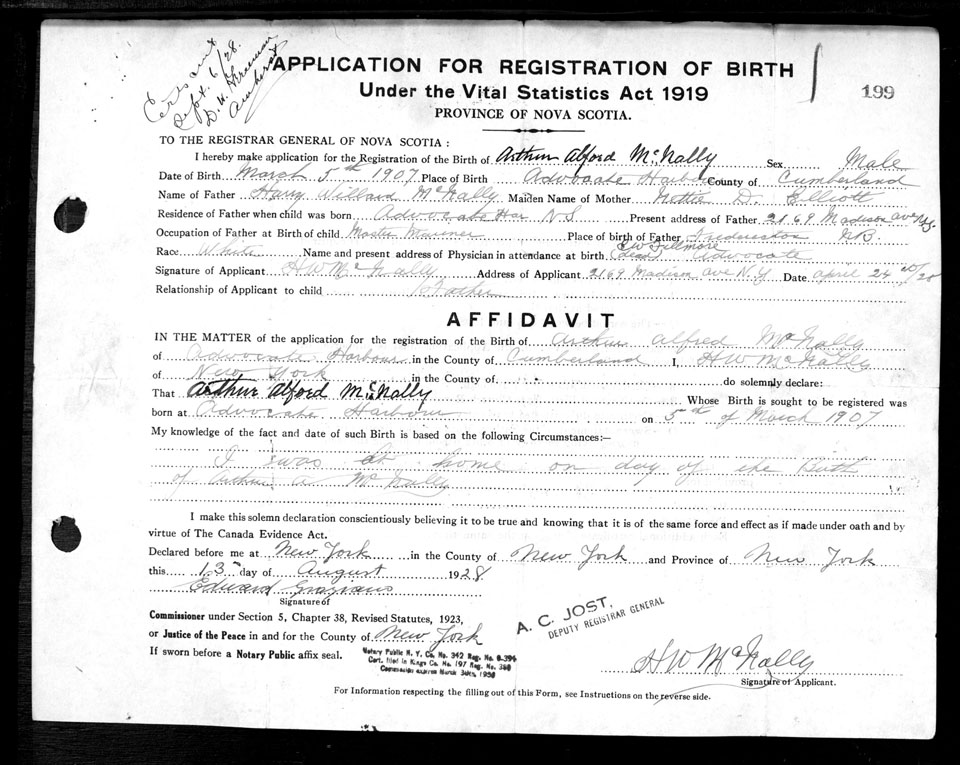 Sept. 6/28.
Amherst
APPLICATION FOR REGISTRATION OF BIRTH
199
Under the Vital Statistics Act 1919
PROVINCE OF NOVA SCOTIA.
TO THE REGISTRAR GENERAL OF NOVA SCOTIA :
I hereby make application for the Registration of the Birth of Arthur Alford McNally Sex Male
Date of Birth March 5th 1907 Place of Birth Advocate Harbour County of Cumberland
Name of Father Harry Willard McNally Maiden Name of Mother Nettie D. Elliott
Residence of Father when child was born Advocate Har N.S Present address of Father 2169 Madison ave N.Y.
Occupation of Father at Birth of child Master Mariner Place of birth of Father Fredericton N.B.
Race White Name and present address of Physician in attendance at birth (dead) Fillmore Advocate
Signature of Applicant HW McNally Address of Applicant 2169 Madison ave N.Y Date april 24th/28
Relationship of Applicant to child Father
AFFIDAVIT
IN THE MATTER of the application for the registration of the Birth of Arthur Alfred McNally
of Advocate Harbour in the County of Cumberland I, HW McNally
of New York in the County of do solemnly declare:
That Arthur Alford McNally Whose Birth is sought to be registered was
born at Advocate Harbour on 5th of March 1907
My knowledge of the fact and date of such Birth is based on the following Circumstances:—
I was at home on day of the Birth
of Arthur A McNally
I make this solemn declaration conscientiously believing it to be true and knowing that it is of the same force and effect as if made under oath and by
virtue of The Canada Evidence Act.
Declared before me at New York in the County of New York and Province of New York
this 13 day of August 1928
Edward
Signature of
Commissioner under Section 5, Chapter 38, Revised Statutes, 1923,
or Justice of the Peace in and for the County of New York
If sworn before a Notary Public affix seal.
Notary Public N. Y. Co. No. 342 Reg. No. 0-394
Cert. filed in Kings Co. No. 197 Reg. No. 380
Commission expires March 30th, 1930
A. C. JOST,
DEPUTY REGISTRAR GENERAL
HW McNally
Signature of Applicant.
For Information respecting the filling out of this Form, see Instructions on the reverse side.